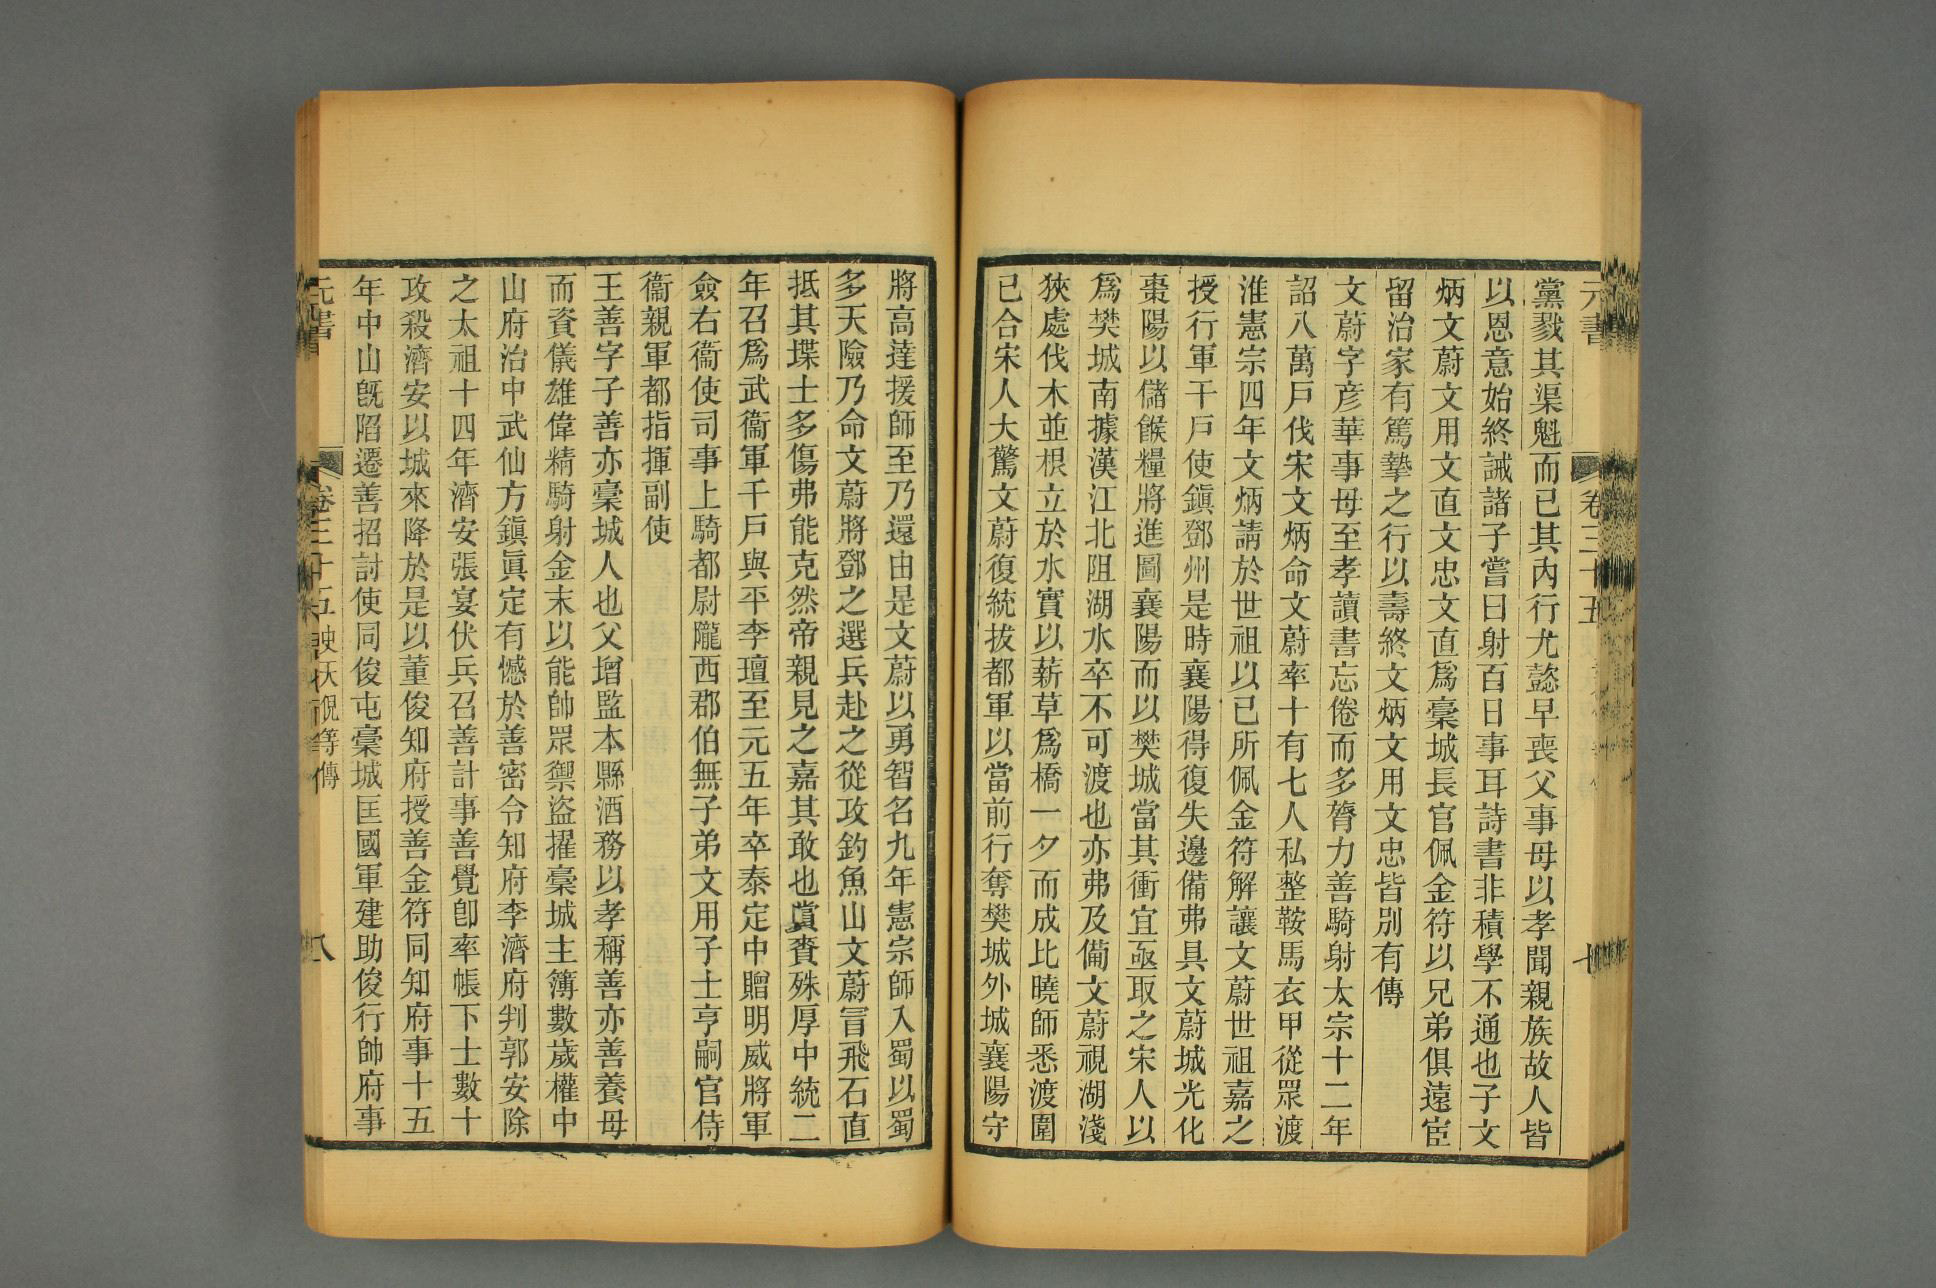 元書
卷三十五
七
黨戮其渠魁而已其內行尤懿早喪父事母以孝聞親族故人皆
以恩意始終誡諸子嘗曰射百日事耳詩書非積學不通也子文
炳文蔚文用文直文忠文直爲藁城長官佩金符以兄弟俱遠宦
留治家有篤摯之行以壽終文炳文用文忠皆別有傳
文蔚字彦華事母至孝讀書忘倦而多膂力善騎射太宗十二年
詔八萬戸伐宋文炳命文蔚率十有七人私整鞍馬衣甲從眾渡
淮憲宗四年文炳請於世祖以已所佩金符解讓文蔚世祖嘉之
授行軍千戸使鎭鄧州是時襄陽得復失邊備弗具文蔚城光化
棗陽以儲餱糧將進圖襄陽而以樊城當其衝宜亟取之宋人以
爲樊城南據漢江北阻湖水卒不可渡也亦弗及備文蔚視湖淺
狹處伐木並根立於水實以薪草爲橋一夕而成比曉師悉渡圍
已合宋人大驚文蔚復統拔都軍以當前行奪樊城外城襄陽守
將高達援師至乃還由是文蔚以勇智名九年憲宗師入蜀以蜀
多天險乃命文蔚將鄧之選兵赴之從攻釣魚山文蔚冒飛石直
抵其堞士多傷弗能克然帝親見之嘉其敢也賞賚殊厚中統二
年召爲武衞軍千戸與平李璮至元五年卒泰定中贈明威將軍
僉右衞使司事上騎都尉隴西郡伯無子弟文用子士亨嗣官侍
衞親軍都指揮副使
王善字子善亦藁城人也父增監本縣酒務以孝稱善亦善養母
而資儀雄偉精騎射金末以能帥眾禦盜擢藁城主簿數歲權中
山府治中武仙方鎭眞定有憾於善密令知府李濟府判郭安除
之太祖十四年濟安張宴伏兵召善計事善覺卽率帳下士數十
攻殺濟安以城來降於是以董俊知府授善金符同知府事十五
年中山旣陷遷善招討使同俊屯藁城匡國軍建助俊行帥府事
元書
卷三十五 史天倪等傳
八